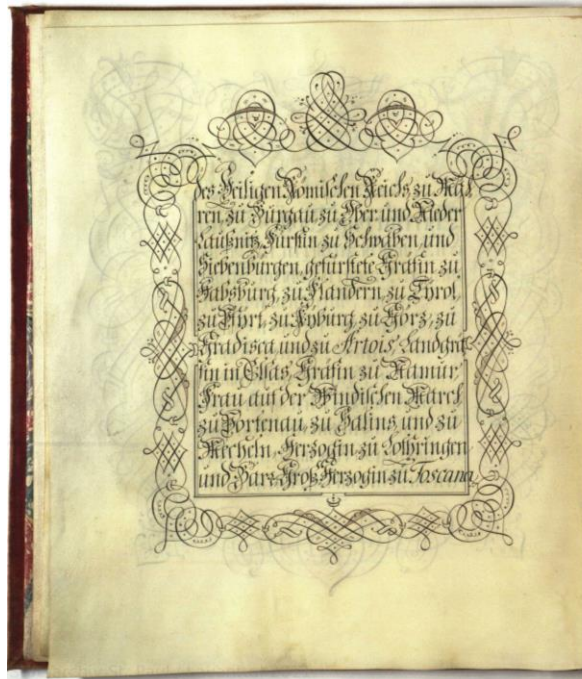 des Heiligen Römischen Reichs zu Mäh-
ren zu Burgau zu Ober und Nieder
Laußnitz, Fürstin zu Schwaben, und
Siebenbürgen, gefürstete Gräfin zu
Habsburg, zu Flandern, zu Tyrol,
zu Pfyrt, zu Kyburg, zu Görz, zu
Gradisca, und zu Artois, Landgrä-
fin in Elsas, Gräfin zu Namur
Frau auf der Windischen March
zu Portenau, zu Salins, und zu
Mecheln, Herzogin zu Lothringen
und Bar, Groß Herzogin zu Toscana